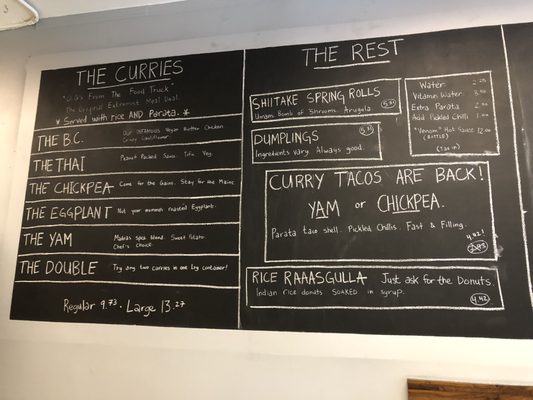 THE CURRIES
"O.G's From The Food Truck"
The Original Extremist Meal Deal.
* Served with rice AND Parata. *
THE B.C.
Our infamous Vegan Butter Chicken
Crispy Cauliflower.
THE THAI
Peanut Packed Sauce. Tofu. Yes.
THE CHICKPEA
Come for the Gains. Stay for the
THE EGGPLANT
Not your mommas roasted Eggplant.
THE YAM
Madras spice blend. Sweet Potato
Chef's Choice
THE DOUBLE
Try any two curries in one container!
Regular 9.73 · Large 13.27
THE REST
SHIITAKE SPRING ROLLS
Umami Bomb of 'Shrooms. Arugula.
DUMPLINGS
Ingredients vary. Always good.
Water 2.00
Vitamin Water
Extra Parata
Add Pickled Chilli 1.00
"Venom" Hot Sauce 12.00
(BOTTLE)
(TAX IN)
CURRY TACOS ARE BACK!
YAM or CHICKPEA.
Parata taco shell. Pickled Chillis. Fast & Filling.
4.42!
RICE RAAASGULLA Just ask for the Donuts.
Indian rice donuts. SOAKED in syrup.
4.42